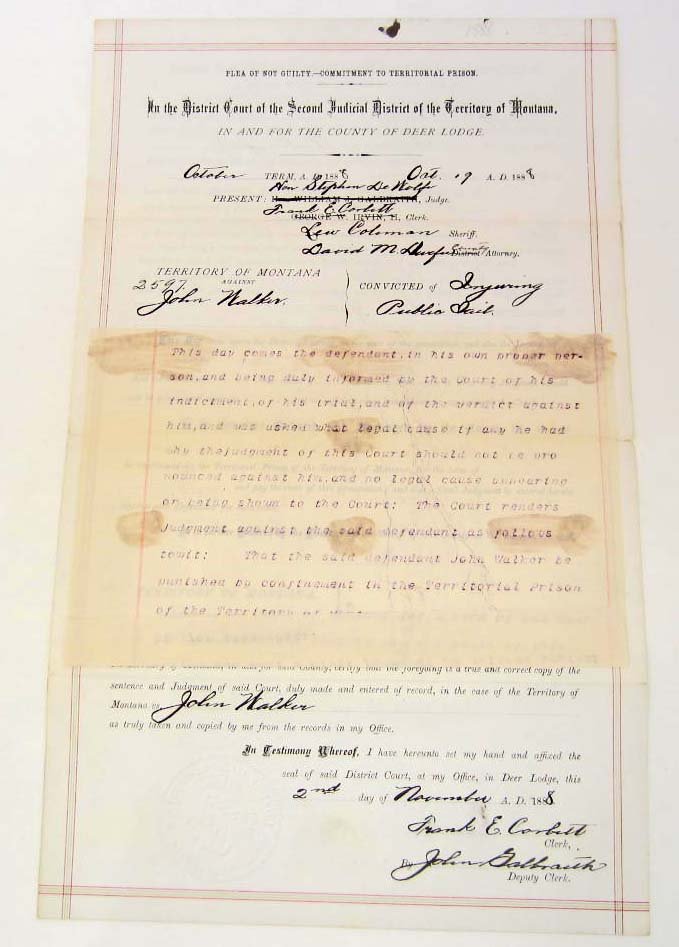 PLEA OF NOT GUILTY.—COMMITMENT TO TERRITORIAL PRISON.
In the District Court of the Second Judicial District of the Territory of Montana,
IN AND FOR THE COUNTY OF DEER LODGE.
October TERM, A. D. 1888 Oct. 19 A. D. 1888
Hon Stephen De Wolfe
PRESENT: H. WILLIAM J. GALBRAITH, Judge.
Frank E. Corbett
GEORGE W. IRVIN, II, Clerk.
Lew Coleman Sheriff.
David M. County District Attorney.
TERRITORY OF MONTANA
2597. AGAINST CONVICTED of Injuring
John Walker. Public Jail.
This day comes the defendant, in his own proper per-
son, and being duly informed by the Court of his
indictment, of his trial, and of the verdict against
him, and was asked what legal cause if any he had
why thejudgment of this Court should not be pro
nounced against him, and no legal cause appearing
or being shown to the Court: The Court renders
Judgment against the said defendant as follows
towit: That the said defendant John Walker be
punished by confinement in the Territorial Prison
of the Territory of
in and for said County, certify that the foregoing is a true and correct copy of the
sentence and Judgment of said Court, duly made and entered of record, in the case of the Territory of
Montana vs John Walker
as truly taken and copied by me from the records in my Office.
In Testimony Whereof, I have hereunto set my hand and affixed the
seal of said District Court, at my Office, in Deer Lodge, this
2nd day of November A. D. 1888.
Frank E. Corbett
Clerk,
By John Galbraith
Deputy Clerk.